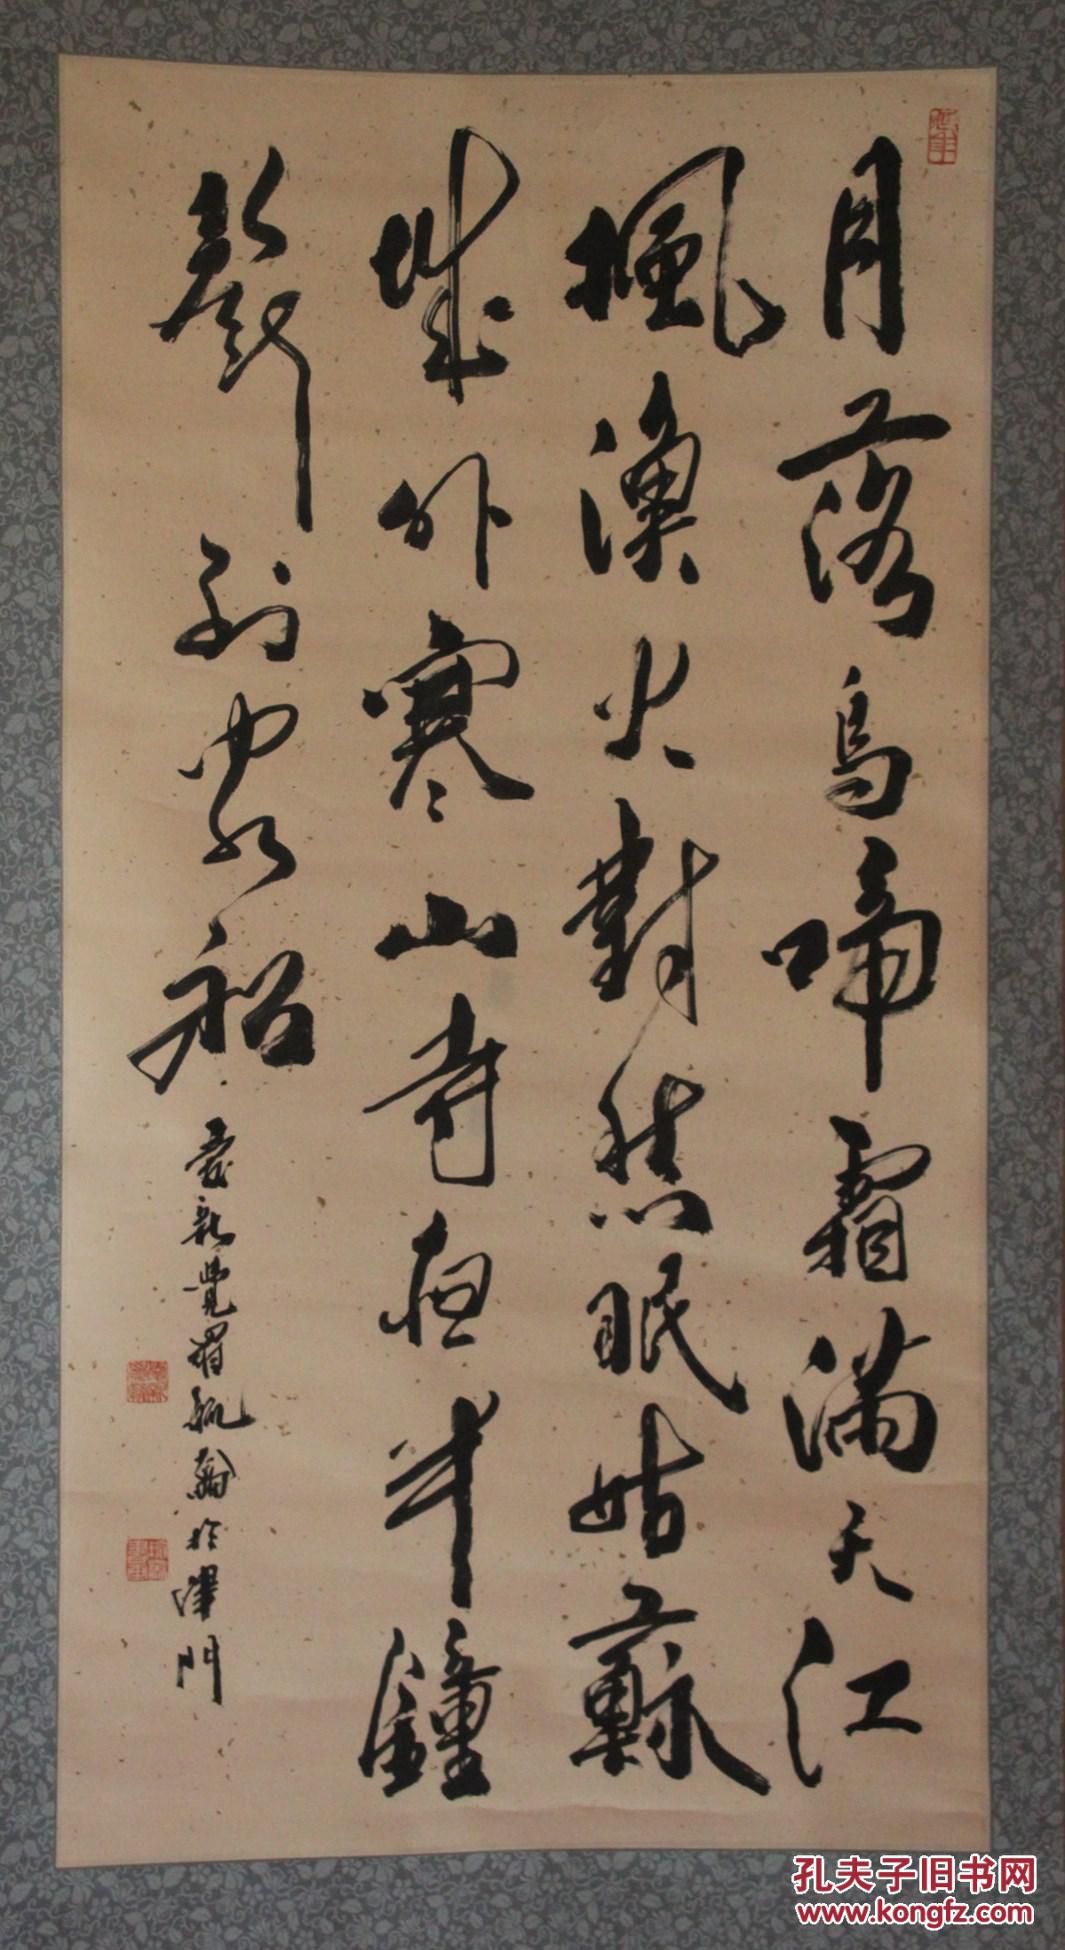 月落烏啼霜滿天江
楓漁火對愁眠姑蘇
城外寒山寺夜半鐘
聲到客船
愛新覺羅毓嶦於津門
孔夫子旧书网
www.kongfz.com